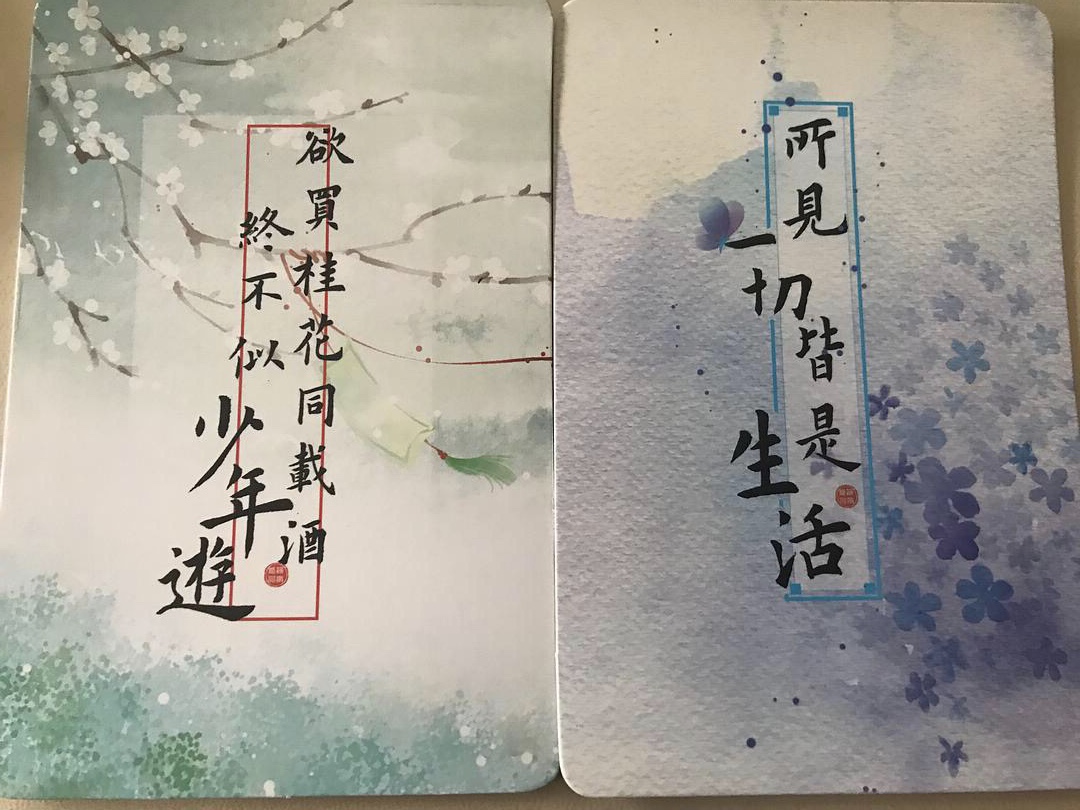 欲買桂花同載酒
終不似
少年遊
所見
一切
皆是
生活